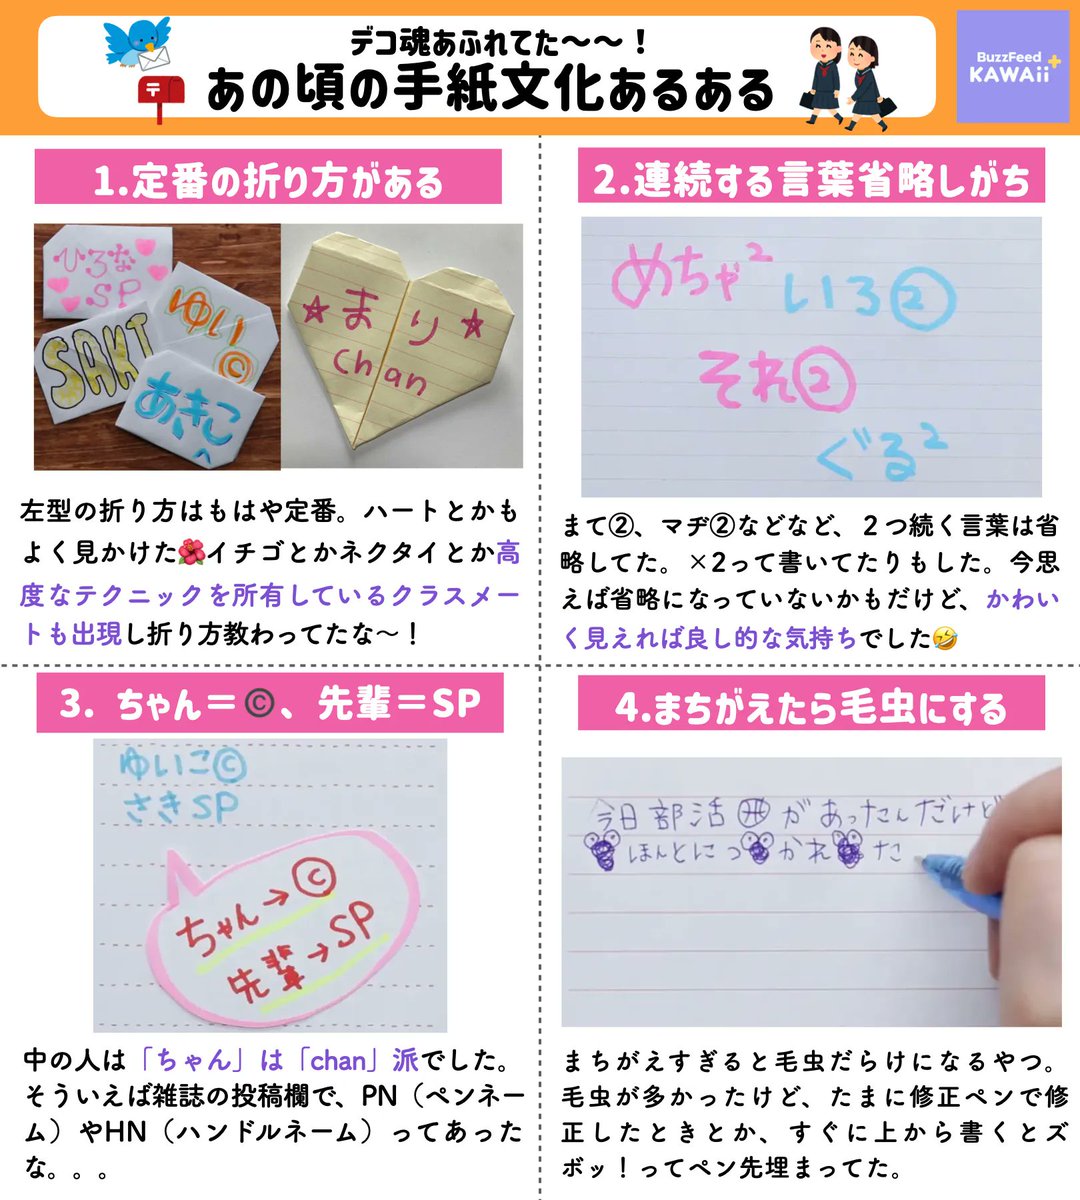 デコ魂あふれてた〜〜！
あの頃の手紙文化あるある
BuzzFeed
KAWAii
1.定番の折り方がある
ひろな
SP
ゆい
©
SAKI
あきこ
まり
chan
左型の折り方はもはや定番。ハートとかも
よく見かけた🌺イチゴとかネクタイとか高
度なテクニックを所有しているクラスメー
トも出現し折り方教わってたな〜！
2.連続する言葉省略しがち
めちゃ²
いろ②
それ②
ぐる²
まて②、マヂ②などなど、２つ続く言葉は省
略してた。×2って書いてたりもした。今思
えば省略になっていないかもだけど、かわい
く見えれば良し的な気持ちでした🤣
3. ちゃん＝©、先輩＝SP
ゆいこ©
さきSP
ちゃん→©
先輩→SP
中の人は「ちゃん」は「chan」派でした。
そういえば雑誌の投稿欄で、PN（ペンネー
ム）やHN（ハンドルネーム）ってあった
な。。。
4.まちがえたら毛虫にする
今日部活
があったんだけど
ほんとにつ
かれ
た
まちがえすぎると毛虫だらけになるやつ。
毛虫が多かったけど、たまに修正ペンで修
正したときとか、すぐに上から書くとズ
ボッ！ってペン先埋まってた。